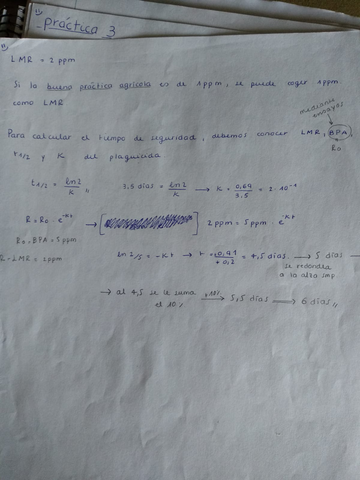 práctica 3
1)
LMR = 2 ppm
Si la buena práctica agrícola es de 1 ppm, se puede coger 1 ppm.
como LMR
mediante ensayos
Para calcular el tiempo de seguridad, debemos conocer LMR, BPA,
R0
t1/2 y K del plaguicida
t1/2 = ln2/K,, 3.5 días = ln2/K → K = 0,69/3.5 = 2·10⁻¹
R = R0 · e^-Kt → [ ] 2 ppm = 5 ppm · e^-Kt
R0, BPA = 5 ppm
R = LMR = 2 ppm
ln 2/5 = -Kt → t = +0,91/+0,2 = 4,5 días → 5 días
se redondea
a la alta smp
→ al 4,5 se le suma +10% → 5,5 días → 6 días,,
el 10%